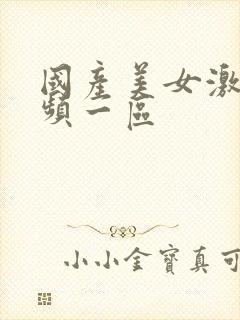 國産美女激
頻一區
小小金寶真可